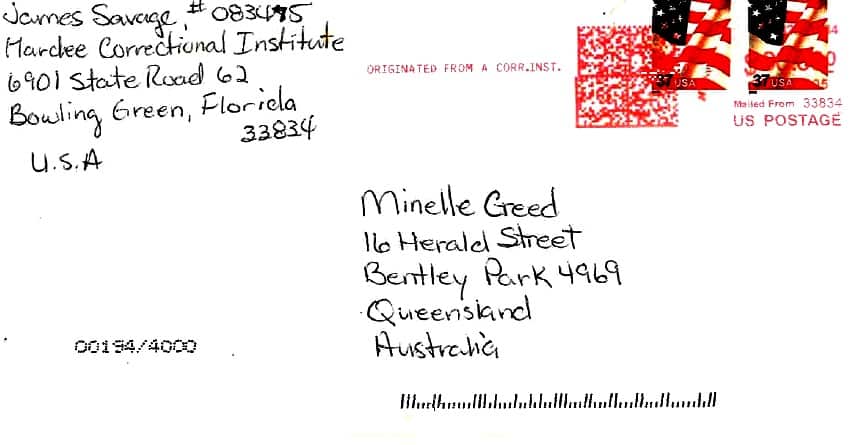 James Savage, # 083475
Hardee Correctional Institute
6901 State Road 62
Bowling Green, Florida
33834
U.S.A
ORIGINATED FROM A CORR.INST.
37 USA
37 USA
Mailed From 33834
US POSTAGE
Minelle Creed
16 Herald Street
Bentley Park 4969
Queensland
Australia
00194/4000